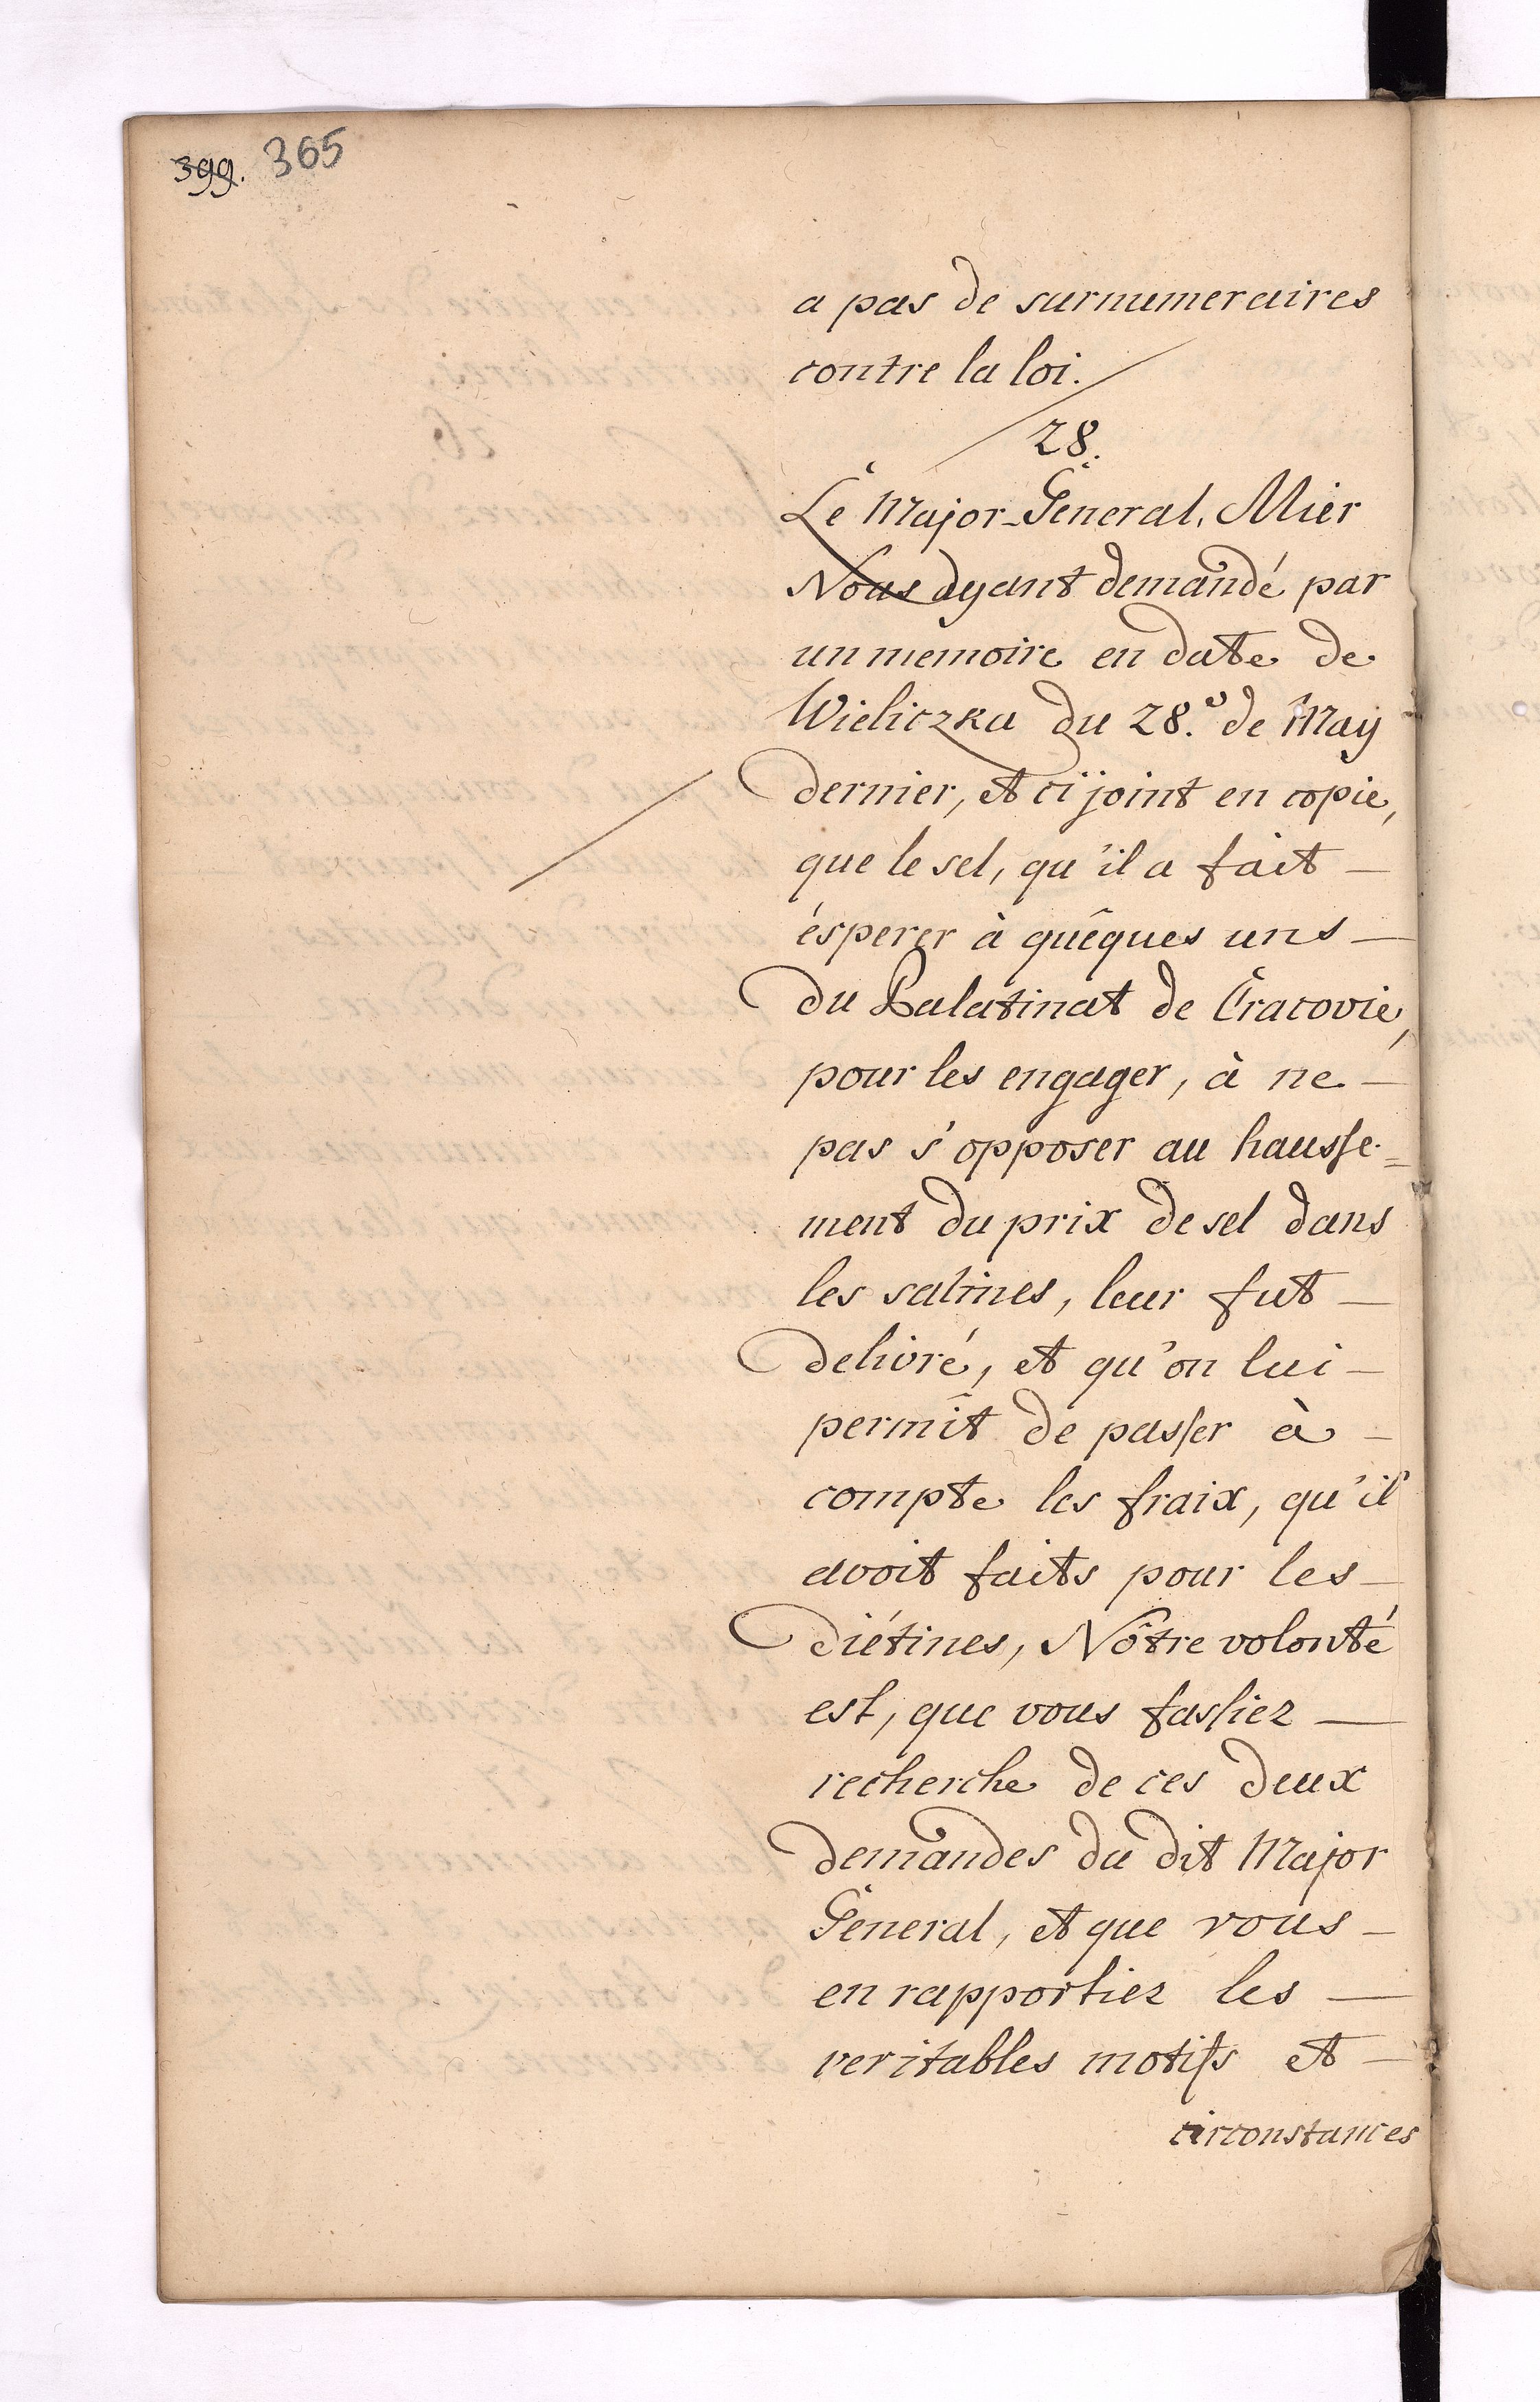 399. 365
a pas de surnumeraires
contre la loi.
28.
Le Major-General, Mier
Nous ayant demandé par
un memoire en date de
Wieliczka du 28.e de May
dernier, et ci joint en copie,
que le sel, qu'il a fait —
ésperer à quêques uns —
du Palatinat de Cracovie,
pour les engager, à ne —
pas s'opposer au hausse=
ment du prix de sel dans
les salines, leur fut —
delivré, et qu'on lui —
permît de passer à —
compte les fraix, qu'il
avoit faits pour les —
diétines, Nôtre volonté
est, que vous fassiez —
recherche de ces deux
demandes du dit Major
General, et que vous —
en rapportiez les —
veritables motifs et —
circonstances